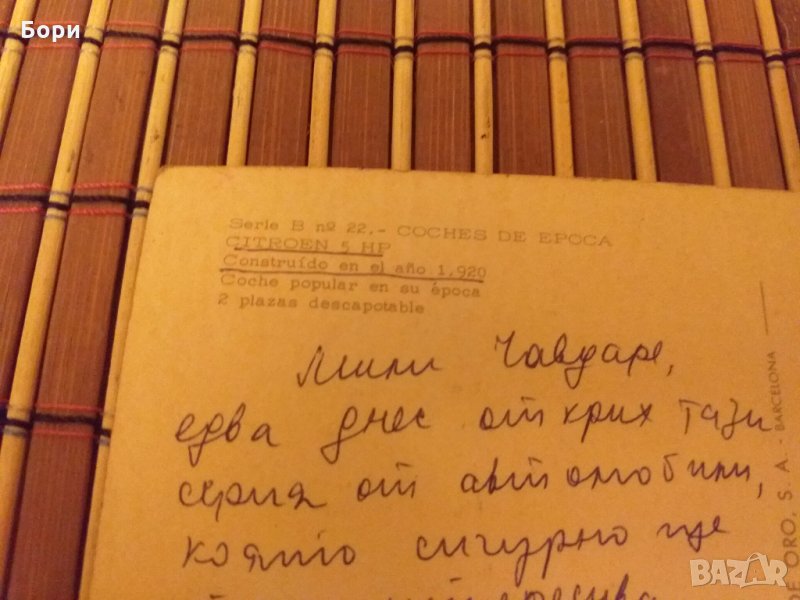 Бори
Serie B nº 22.- COCHES DE EPOCA
CITROEN 5 HP
Construído en el año 1,920
Coche popular en su época
2 plazas descapotable
Мили Чавдаре,
едва днес открих тази
серия от автомобили,
която сигурно ще
DE ORO, S. A. - BARCELONA
BAZAR